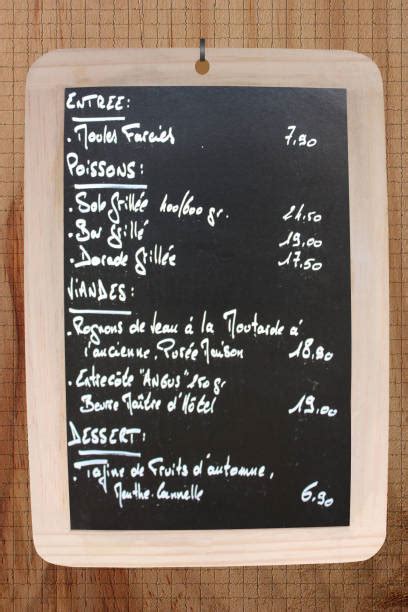 ENTREE:
. Moules Farcies 7,90
POISSONS:
. Sole Grillée 400/600 gr. 21,50
. Bar Grillé 19,00
. Dorade Grillée 17,50
VIANDES:
. Rognons de Veau à la Moutarde à
l'ancienne, Purée Maison 18,90
. Entrecôte "ANGUS" 250 gr
Beurre Maître d'Hôtel 19,00
DESSERT:
. Tajine de Fruits d'automne,
Menthe-Cannelle 6,90